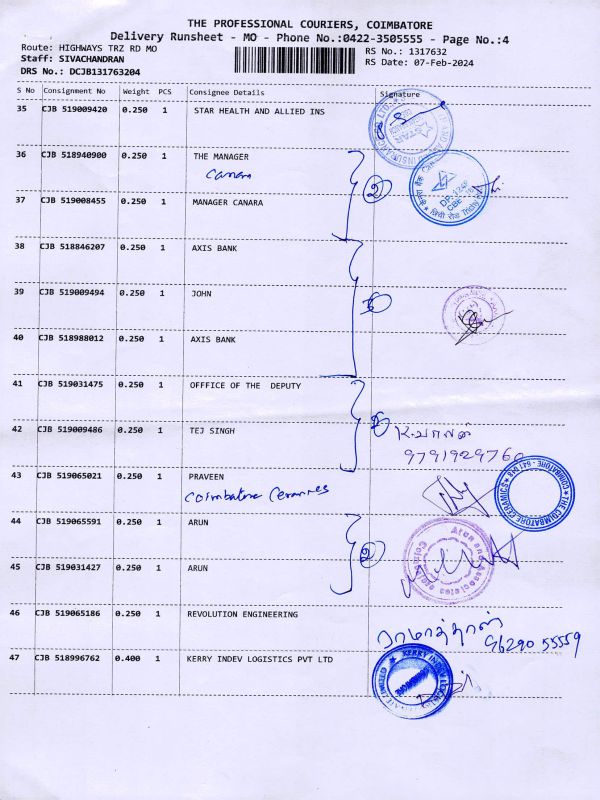 THE PROFESSIONAL COURIERS, COIMBATORE
Delivery Runsheet - MO - Phone No.:0422-3505555 - Page No.:4
Route: HIGHWAYS TRZ RD MO
RS No.: 1317632
Staff: SIVACHANDRAN
RS Date: 07-Feb-2024
DRS No.: DCJB131763204
S No Consignment No Weight PCS Consignee Details Signature
35 CJB 519009420 0.250 1 STAR HEALTH AND ALLIED INS
36 CJB 518940900 0.250 1 THE MANAGER
Canara
37 CJB 519008455 0.250 1 MANAGER CANARA
2
38 CJB 518846207 0.250 1 AXIS BANK
39 CJB 519009494 0.250 1 JOHN
40 CJB 518988012 0.250 1 AXIS BANK
41 CJB 519031475 0.250 1 OFFFICE OF THE DEPUTY
42 CJB 519009486 0.250 1 TEJ SINGH
9791929760
43 CJB 519065021 0.250 1 PRAVEEN
Coimbatore Ceramics
THE COIMBATORE CERAMICS
44 CJB 519065591 0.250 1 ARUN
2
Arun and Associates
45 CJB 519031427 0.250 1 ARUN
46 CJB 519065186 0.250 1 REVOLUTION ENGINEERING
96290 55559
47 CJB 518996762 0.400 1 KERRY INDEV LOGISTICS PVT LTD